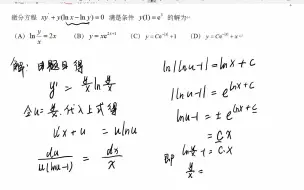 微分方程 xy' + y(ln x − ln y) = 0 满足条件 y(1) = e³ 的解为
(A) ln y/x = 2x (B) y = xe^{2x+1} (C) y = Ce^{-2x} + 1 (D)
解: 由题目得
y' = y/x ln y/x
令 u = y/x, 代入上式得
u'x + u = u ln u
du/u(ln u − 1) = dx/x
ln|ln u − 1| = ln x + C
|ln u − 1| = e^{ln x + C}
ln u − 1 = ± e^{ln x + C}
= C x
即 ln y/x − 1 = C·x
y/x =